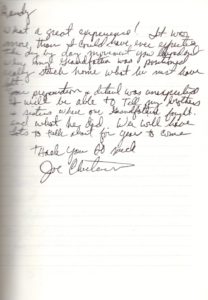 Randy
What a great experience! It was
more than I could have ever expected
The day by day movement you
why my Grandfather was positioned
really struck home what he must have
preparation & detail was unexpected
will be able to tell my brothers
& sisters where our Grandfather fought
and what he did. We will have
lots to talk about for years to come
Thank you so much
Joe